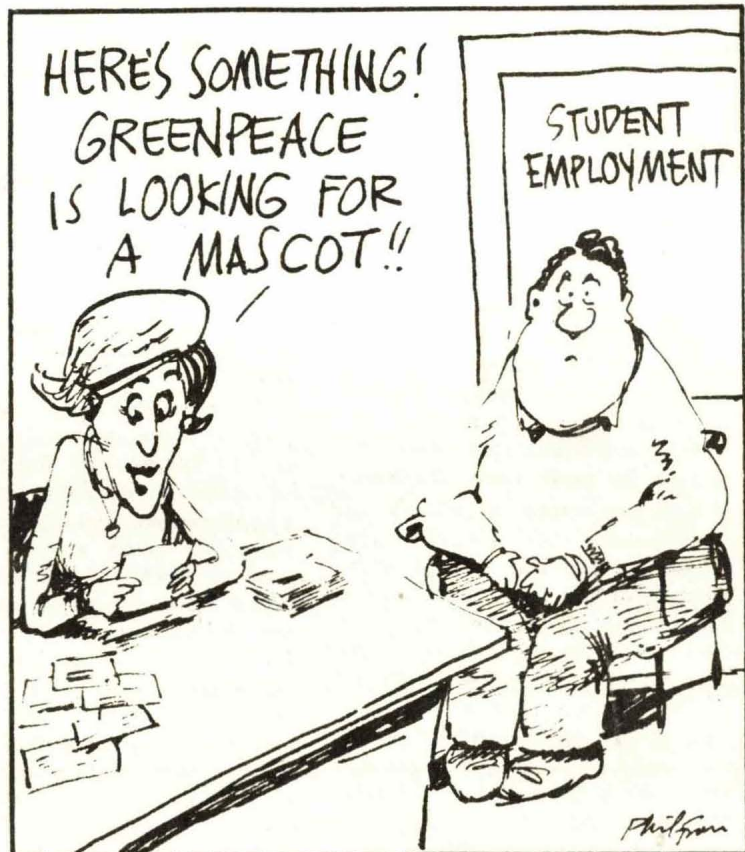 HERE'S SOMETHING!
GREENPEACE
IS LOOKING FOR
A MASCOT!!
STUDENT
EMPLOYMENT